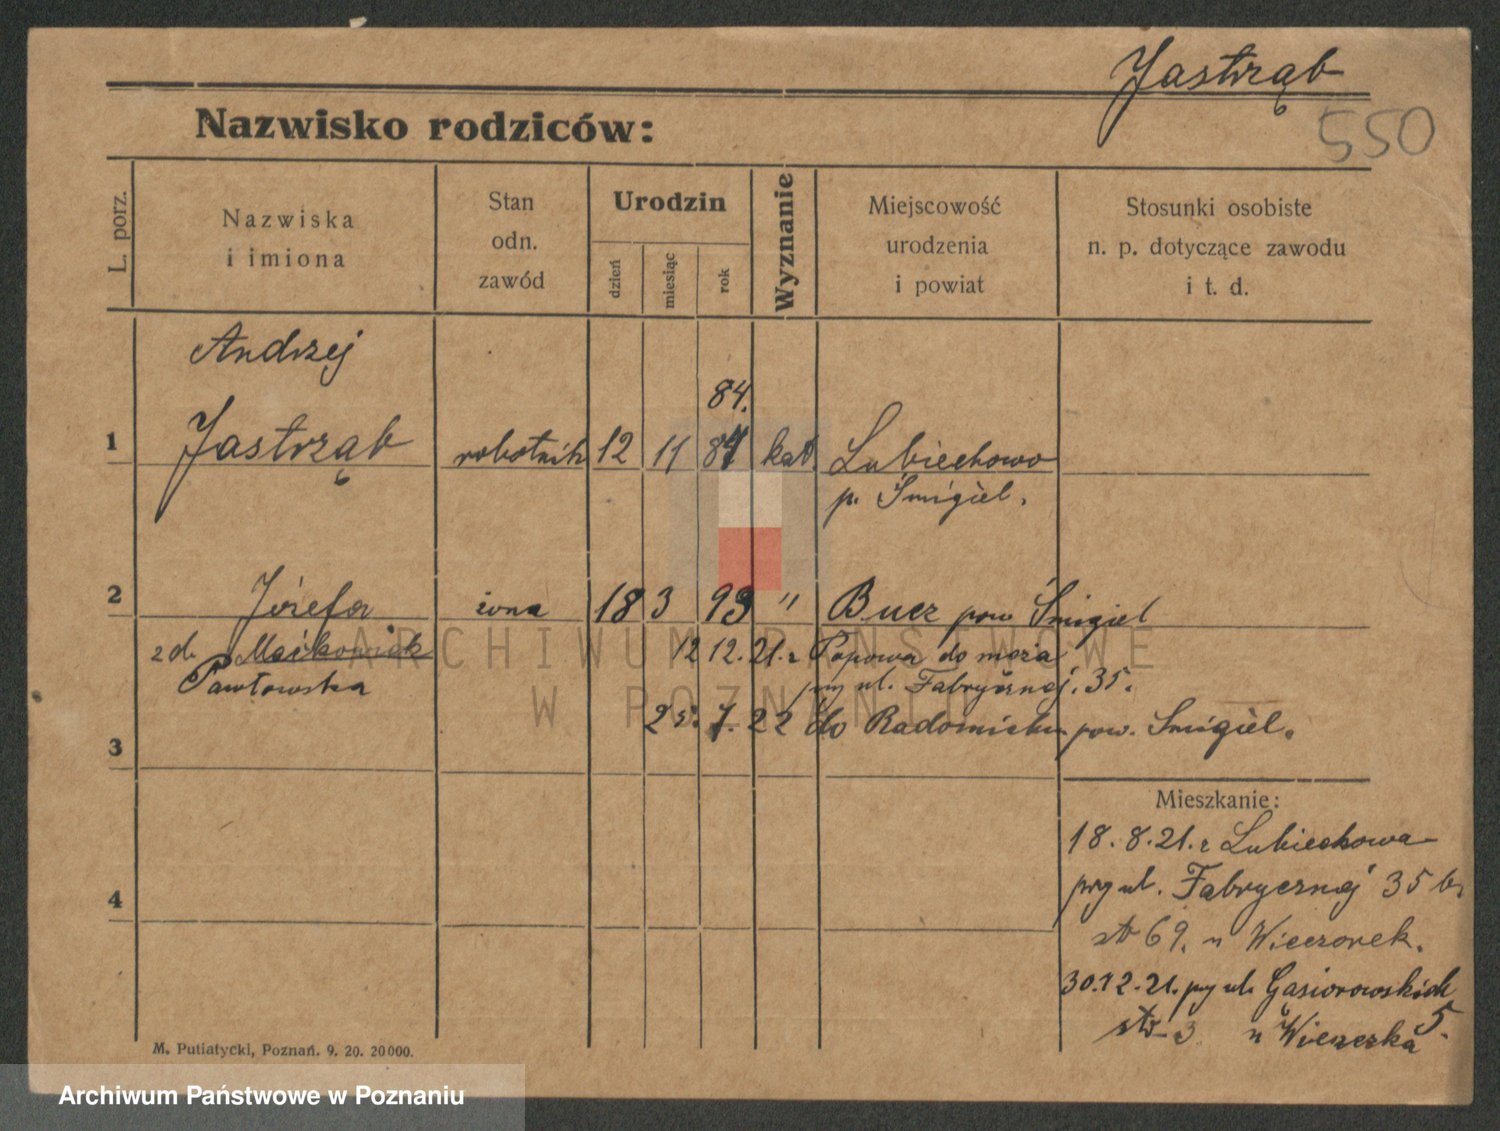 Jastrząb
550
Nazwisko rodziców:
L. porz.
Nazwiska
i imiona
Stan
odn.
zawód
Urodzin
dzień
miesiąc
rok
Wyznanie
Miejscowość
urodzenia
i powiat
Stosunki osobiste
n. p. dotyczące zawodu
i t. d.
Andrzej
84.
1 Jastrząb robotnik 12 11 84 kat. Lubiechowo
p. Śmigiel.
2 Józefa żona 18 3 93 " Bucz pow Śmigiel
zd. Maćkowiak 12 12. 21. z Popowa do męża
Pawłowska przy ul. Fabrycznej. 35.
25. 7. 22 do Radomicka pow. Śmigiel.
3
Mieszkanie:
18. 8. 21. z Lubiechowa
przy ul. Fabrycznej 35 b.
st 69. u Wieczorek.
4
30.12.21. przy ul. Gąsiorowskich
5.
str 3 u Wieczorka
M. Putiatycki, Poznań. 9. 20. 20000.
ARCHIWUM PAŃSTWOWE
W POZNANIU
Archiwum Państwowe w Poznaniu